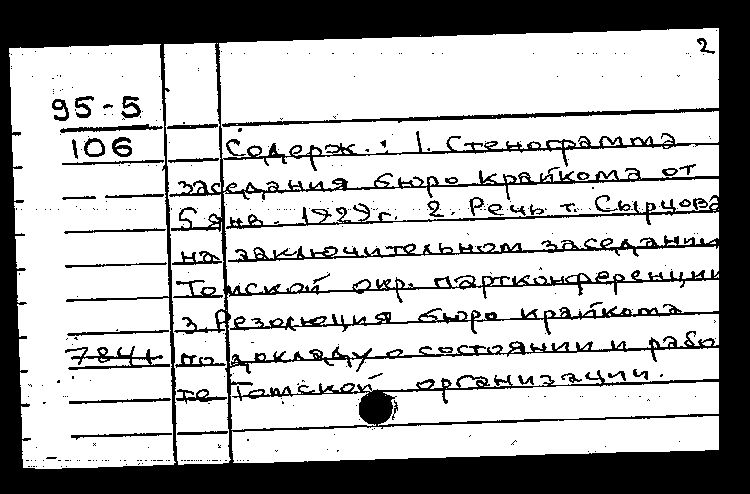 2
95-5
106
Содерж.: 1. Стенограмма
заседания бюро крайкома от
5 янв. 1929г. 2. Речь т. Сырцова
на заключительном заседании
Томской окр. партконференции
3. Резолюция бюро крайкома
по докладу о состоянии и рабо
те Томской организации.